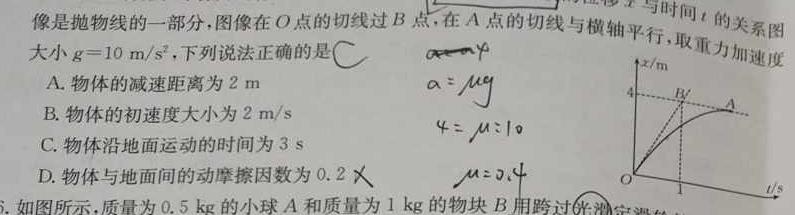 位移 x 与时间 t 的关系图
像是抛物线的一部分,图像在 O 点的切线过 B 点,在 A 点的切线与横轴平行,取重力加速度
大小 g=10 m/s²,下列说法正确的是 C
A. 物体的减速距离为 2 m
B. 物体的初速度大小为 2 m/s
C. 物体沿地面运动的时间为 3 s
D. 物体与地面间的动摩擦因数为 0.2 X
a=μg
4=μ=10
μ=0.4
x/m
4
B
A
O
1
t/s
6. 如图所示,质量为 0.5 kg 的小球 A 和质量为 1 kg 的物块 B 用跨过光滑定滑